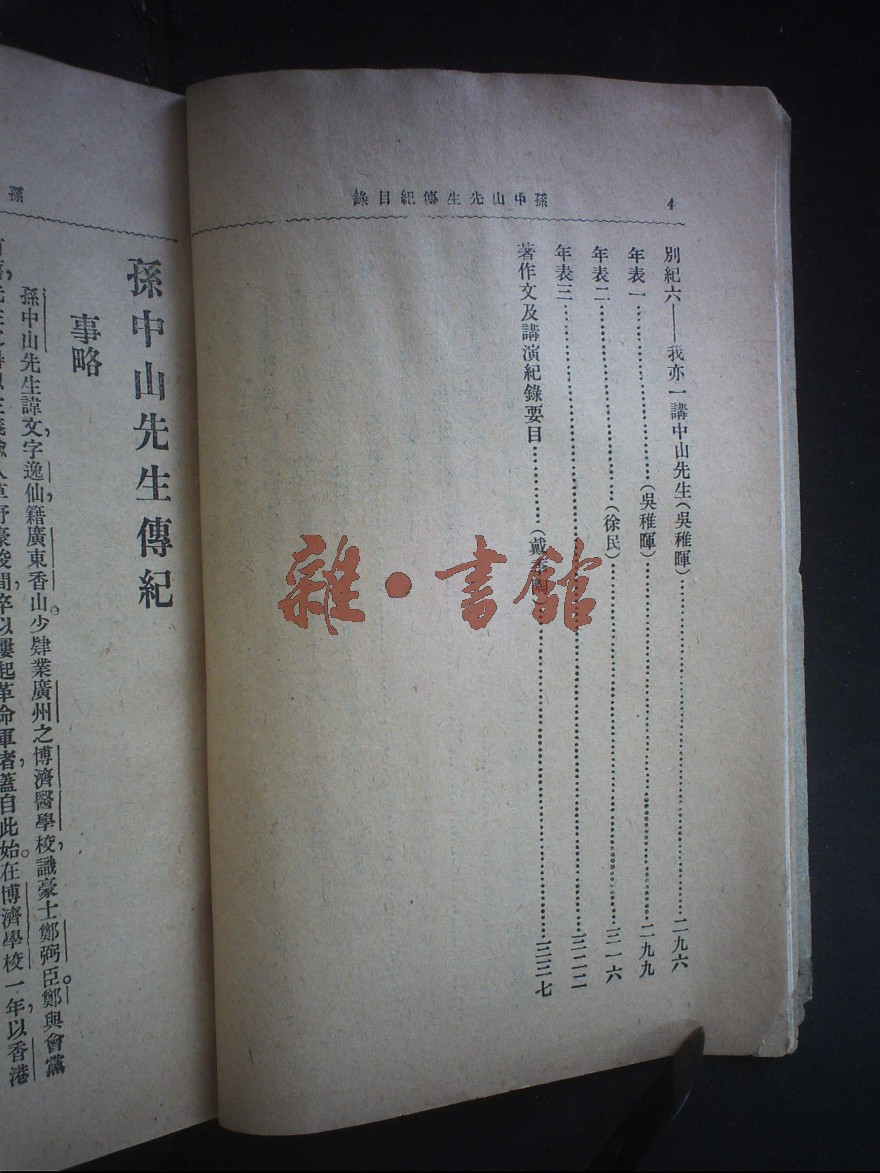 4
孫中山先生傳紀目錄
別紀六——我亦一講中山先生(吳稚暉)……二九六
年表一……(吳稚暉)……二九九
年表二……(徐民)……三一六
年表三……三二二
著作文及講演紀錄要目……(戴季陶)……三三七
孫
孫中山先生傳紀
事略
孫中山先生諱文,字逸仙,籍廣東香山。少肄業廣州之博濟醫學校,識豪士鄭弼臣。鄭與會黨
間,卒以屢起革命軍者,蓋自此始。在博濟學校一年,以香港
雜·書館